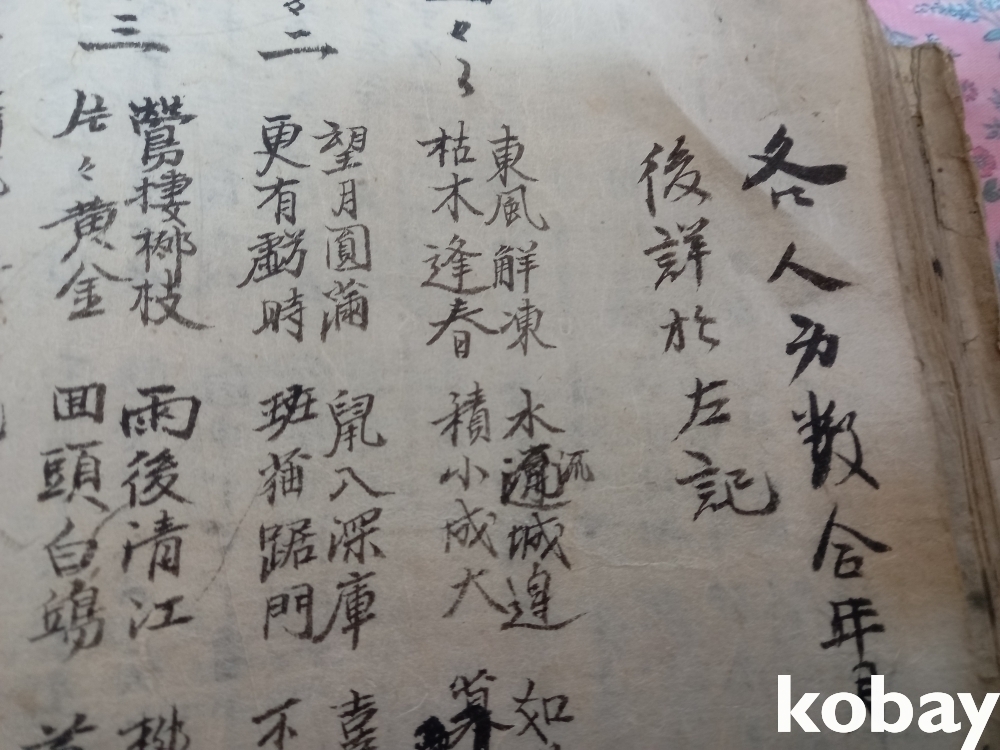 各人為數合年月
後詳於左記
東風解凍 水流城邊 如
枯木逢春 積小成大 算
二
望月圓滿 鼠入深庫 喜
更有虧時 班猫踞門 不
三
鶯棲柳枝 雨後清江
片々黃金 回頭白鷗
kobay